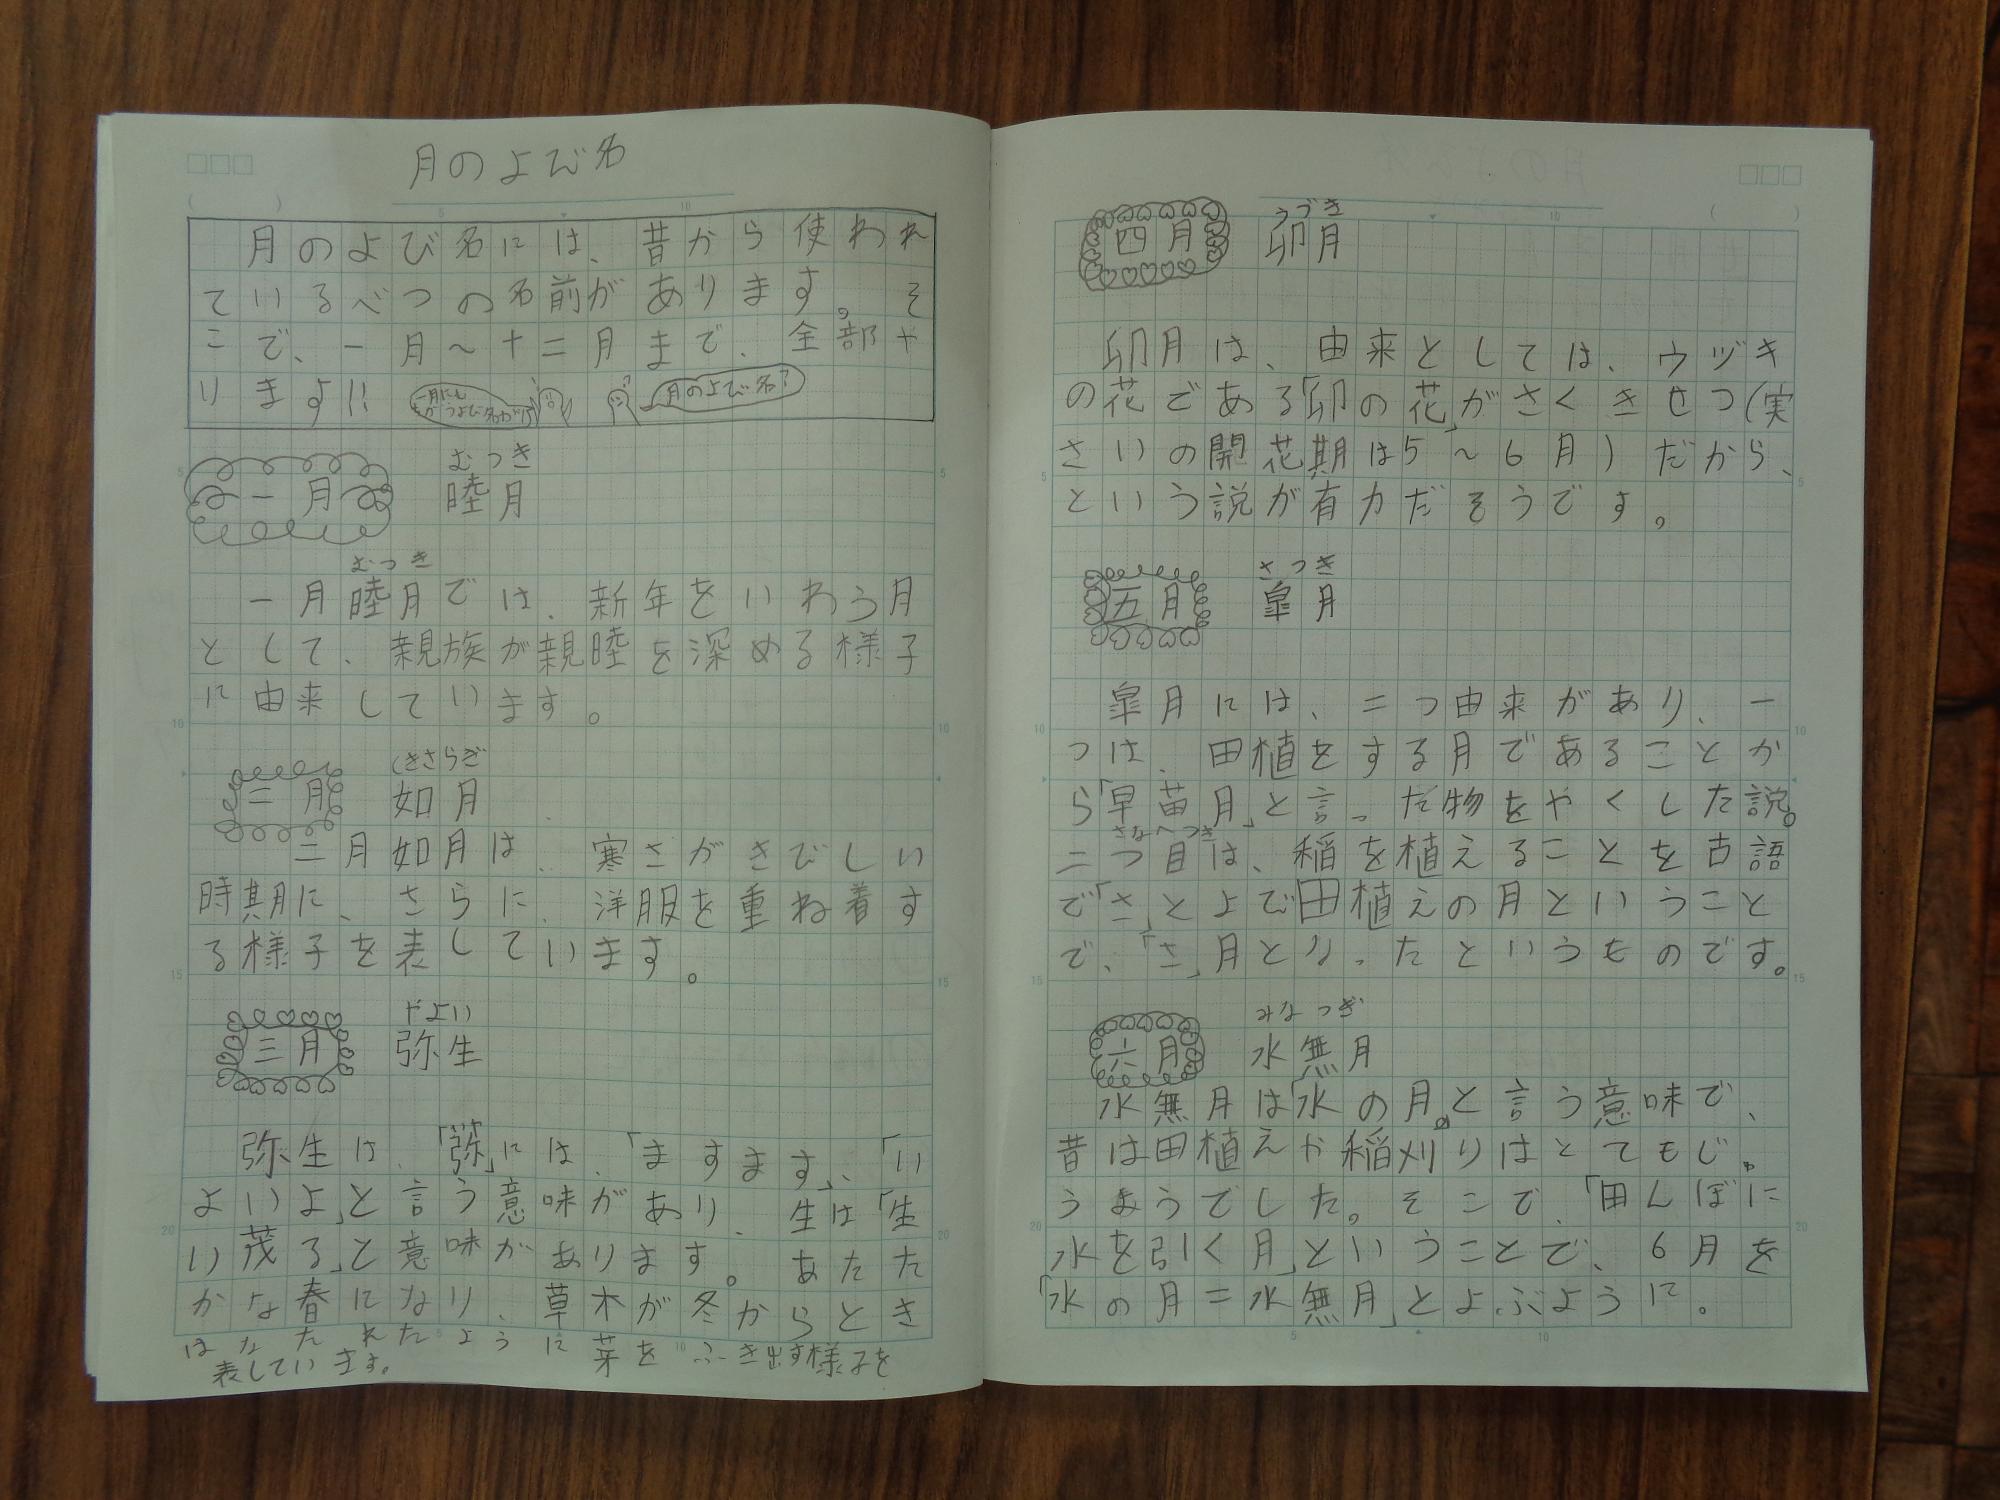 月のよび名
月のよび名には、昔から使われ
ているべつの名前があります。そ
こで、一月〜十二月まで、全部や
ります!!
月のよび名?
むつき
一月 睦月
むつき
一月睦月では、新年をいわう月
として、親族が親睦を深める様子
に由来しています。
(きさらぎ
二月 如月
二月如月は、寒さがきびしい
時期に、さらに、洋服を重ね着す
る様子を表しています。
やよい
三月 弥生
弥生は、「弥」には、「ますます」、「い
よいよ」と言う意味があり、生は「生
い茂る」と意味があります。あたた
かな春になり、草木が冬からとき
はなたれたように芽をふき出す様子を
表しています。
うづき
四月 卯月
卯月は、由来としては、ウヅキ
の花である「卯の花」がさくきせつ(実
さいの開花期は5〜6月)だから、
という説が有力だそうです。
さつき
五月 皐月
皐月には、二つ由来があり、一
つは、田植をする月であることか
ら「早苗月」と言った物をやくした説。
さなへつき
二つ目は、稲を植えることを古語
で「さ」とよび田植えの月ということ
で、「さ」月となったというものです。
みなづき
六月 水無月
水無月は「水の月」と言う意味で、
昔は田植えか稲刈りはとてもじゅ
うようでした。そこで、「田んぼに
水を引く月」ということで、6月を
「水の月=水無月」とよぶように。